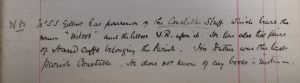 N.B. Mr S.S. Gilbert has possession of the Constable's Staff which bears the
name "Helest" and the letters V.R. upon it. He has also two pairs
of Hand Cuffs belonging to the Parish. His Father was the last
parish Constable. He does not know of any books in existence.